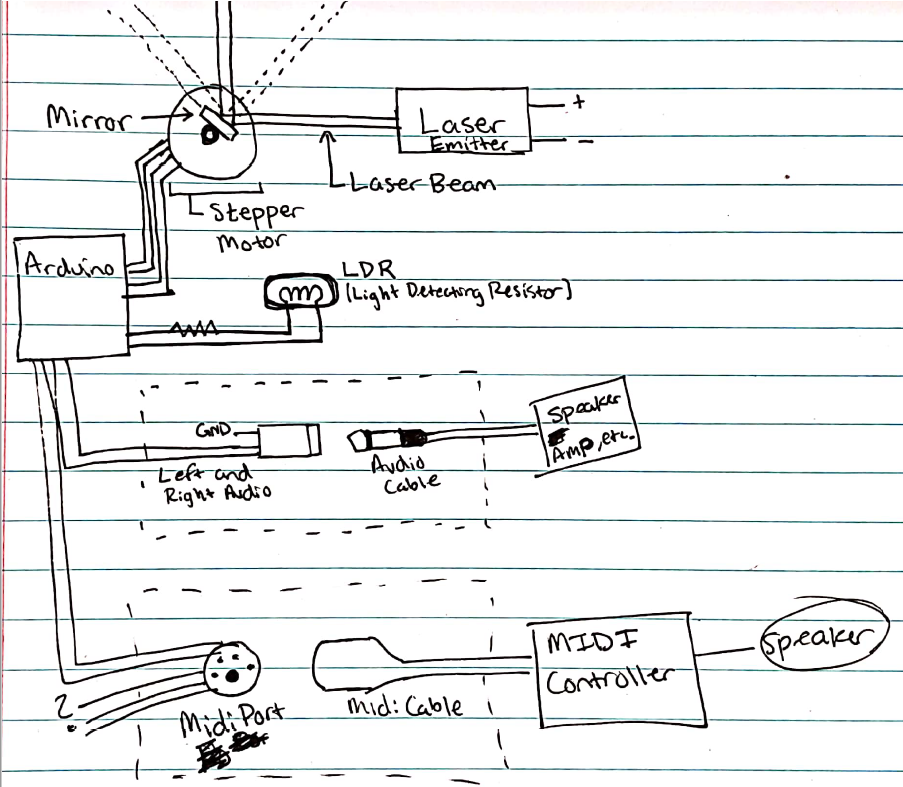 Mirror
Laser
Emitter
+
-
Laser Beam
Stepper
Motor
Arduino
LDR
(Light Detecting Resistor)
Speaker
Amp, etc.
GND
Left and
Right Audio
Audio
Cable
MIDI
Controller
Speaker
?
Midi Port
Midi Cable